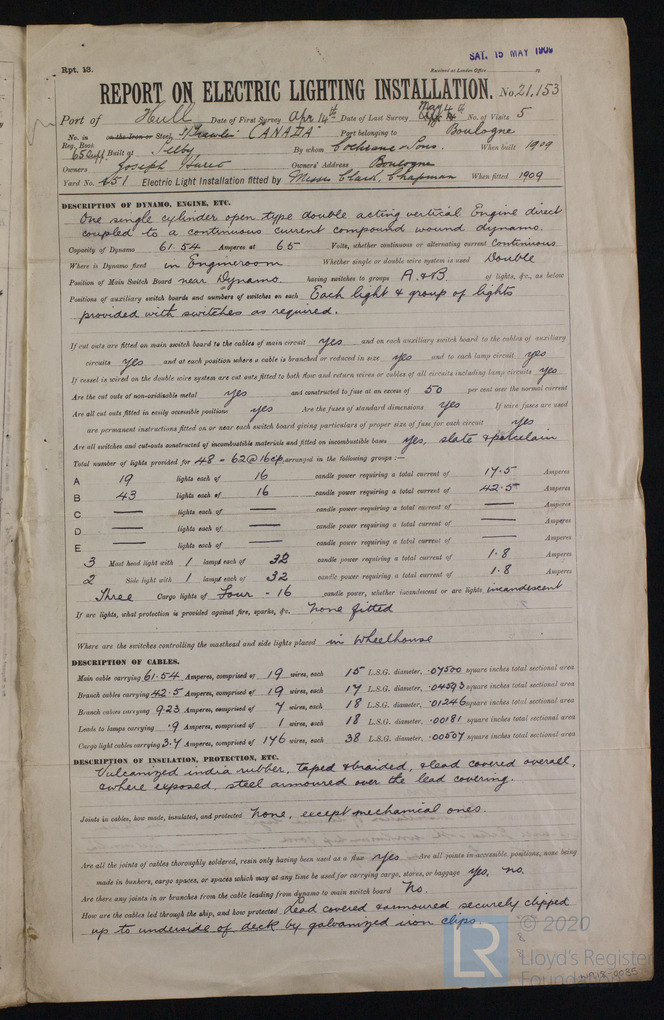 SAT. 15 MAY 1909
Rpt. 13.
Received at London Office
19
REPORT ON ELECTRIC LIGHTING INSTALLATION. No. 21,153
Port of Hull Date of First Survey Apr 14th Date of Last Survey May 4th No. of Visits 5
No. in Reg. Book 65 Supp on the Iron or Steel S/Trawler "CANADA" Port belonging to Boulogne
Built at Selby By whom Cochrane & Sons. When built 1909
Owners Joseph Huret Owners' Address Boulogne
Yard No. 451 Electric Light Installation fitted by Messrs Clark, Chapman When fitted 1909
DESCRIPTION OF DYNAMO, ENGINE, ETC.
One single cylinder open type double acting vertical Engine direct
coupled to a continuous current compound wound dynamo.
Capacity of Dynamo 61.54 Amperes at 65 Volts, whether continuous or alternating current Continuous
Where is Dynamo fixed in Engineroom Whether single or double wire system is used Double
Position of Main Switch Board near Dynamo. having switches to groups A & B of lights, &c., as below
Positions of auxiliary switch boards and numbers of switches on each Each light & group of lights
provided with switches as required.
If cut outs are fitted on main switch board to the cables of main circuit yes and on each auxiliary switch board to the cables of auxiliary
circuits yes and at each position where a cable is branched or reduced in size yes and to each lamp circuit yes
If vessel is wired on the double wire system are cut outs fitted to both flow and return wires or cables of all circuits including lamp circuits yes
Are the cut outs of non-oxidizable metal yes and constructed to fuse at an excess of 50 per cent over the normal current
Are all cut outs fitted in easily accessible positions yes Are the fuses of standard dimensions yes If wire fuses are used
are permanent instructions fitted on or near each switch board giving particulars of proper size of fuse for each circuit yes
Are all switches and cut-outs constructed of incombustible materials and fitted on incombustible bases yes, slate & porcelain
Total number of lights provided for 48 - 62 @ 16 cp. arranged in the following groups :—
A 19 lights each of 16 candle power requiring a total current of 17.5 Amperes
B 43 lights each of 16 candle power requiring a total current of 42.5 Amperes
C — lights each of — candle power requiring a total current of — Amperes
D — lights each of — candle power requiring a total current of — Amperes
E — lights each of — candle power requiring a total current of — Amperes
3 Mast head light with 1 lamps each of 32 candle power requiring a total current of 1.8 Amperes
2 Side light with 1 lamps each of 32 candle power requiring a total current of 1.8 Amperes
Three Cargo lights of Four - 16 candle power, whether incandescent or arc lights incandescent
If arc lights, what protection is provided against fire, sparks, &c. None fitted
Where are the switches controlling the masthead and side lights placed in Wheelhouse
DESCRIPTION OF CABLES.
Main cable carrying 61.54 Amperes, comprised of 19 wires, each 15 L.S.G. diameter, .07500 square inches total sectional area
Branch cables carrying 42.5 Amperes, comprised of 19 wires, each 17 L.S.G. diameter, .04593 square inches total sectional area
Branch cables carrying 9.23 Amperes, comprised of 7 wires, each 18 L.S.G. diameter, .01246 square inches total sectional area
Leads to lamps carrying .9 Amperes, comprised of 1 wires, each 18 L.S.G. diameter, .00181 square inches total sectional area
Cargo light cables carrying 3.7 Amperes, comprised of 176 wires, each 38 L.S.G. diameter, .00507 square inches total sectional area
DESCRIPTION OF INSULATION, PROTECTION, ETC.
Vulcanized india rubber, taped & braided, & lead covered overall,
& where exposed, steel armoured over the lead covering.
Joints in cables, how made, insulated, and protected None, except mechanical ones.
Are all the joints of cables thoroughly soldered, resin only having been used as a flux yes Are all joints in accessible positions, none being
made in bunkers, cargo spaces, or spaces which may at any time be used for carrying cargo, stores, or baggage yes, no.
Are there any joints in or branches from the cable leading from dynamo to main switch board No.
How are the cables led through the ship, and how protected Lead covered & armoured securely clipped
up to underside of deck by galvanized iron clips.
LR © 2020
Lloyd's Register
Foundation